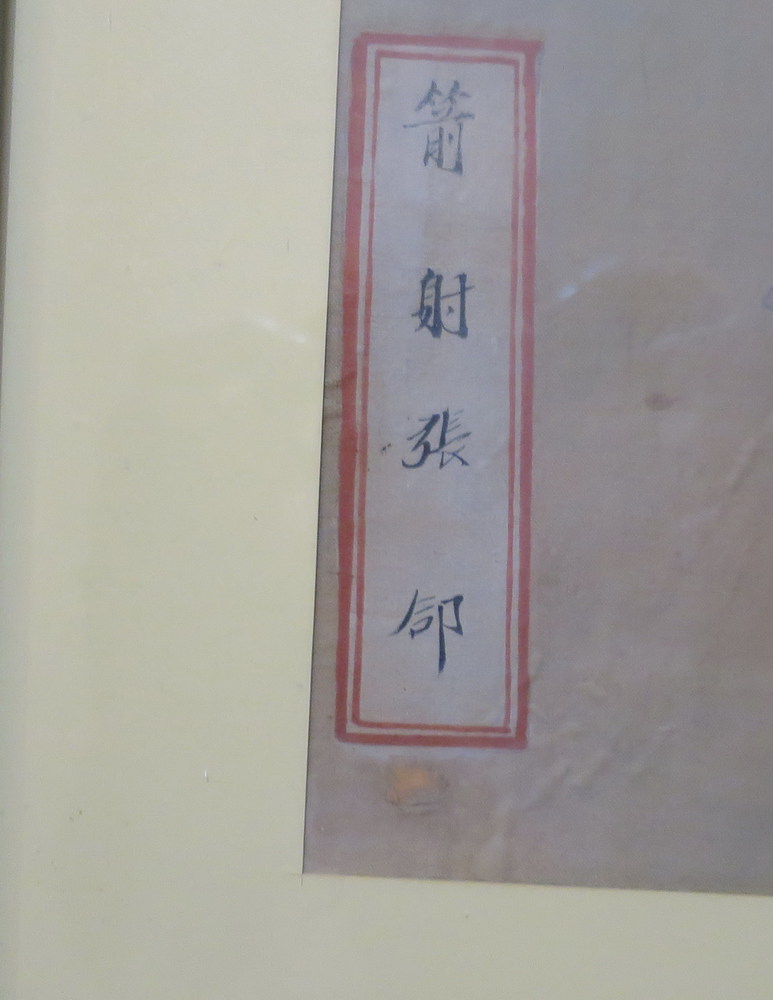 箭射張郃